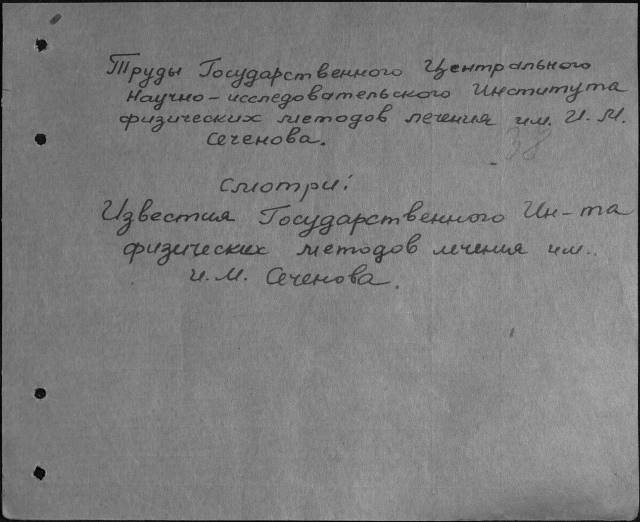 Труды Государственного Центрального
Научно-исследовательского Института
физических методов лечения им. И. М.
Сеченова.
38
смотри:
Известия Государственного Ин-та
физических методов лечения им.
И. М. Сеченова.